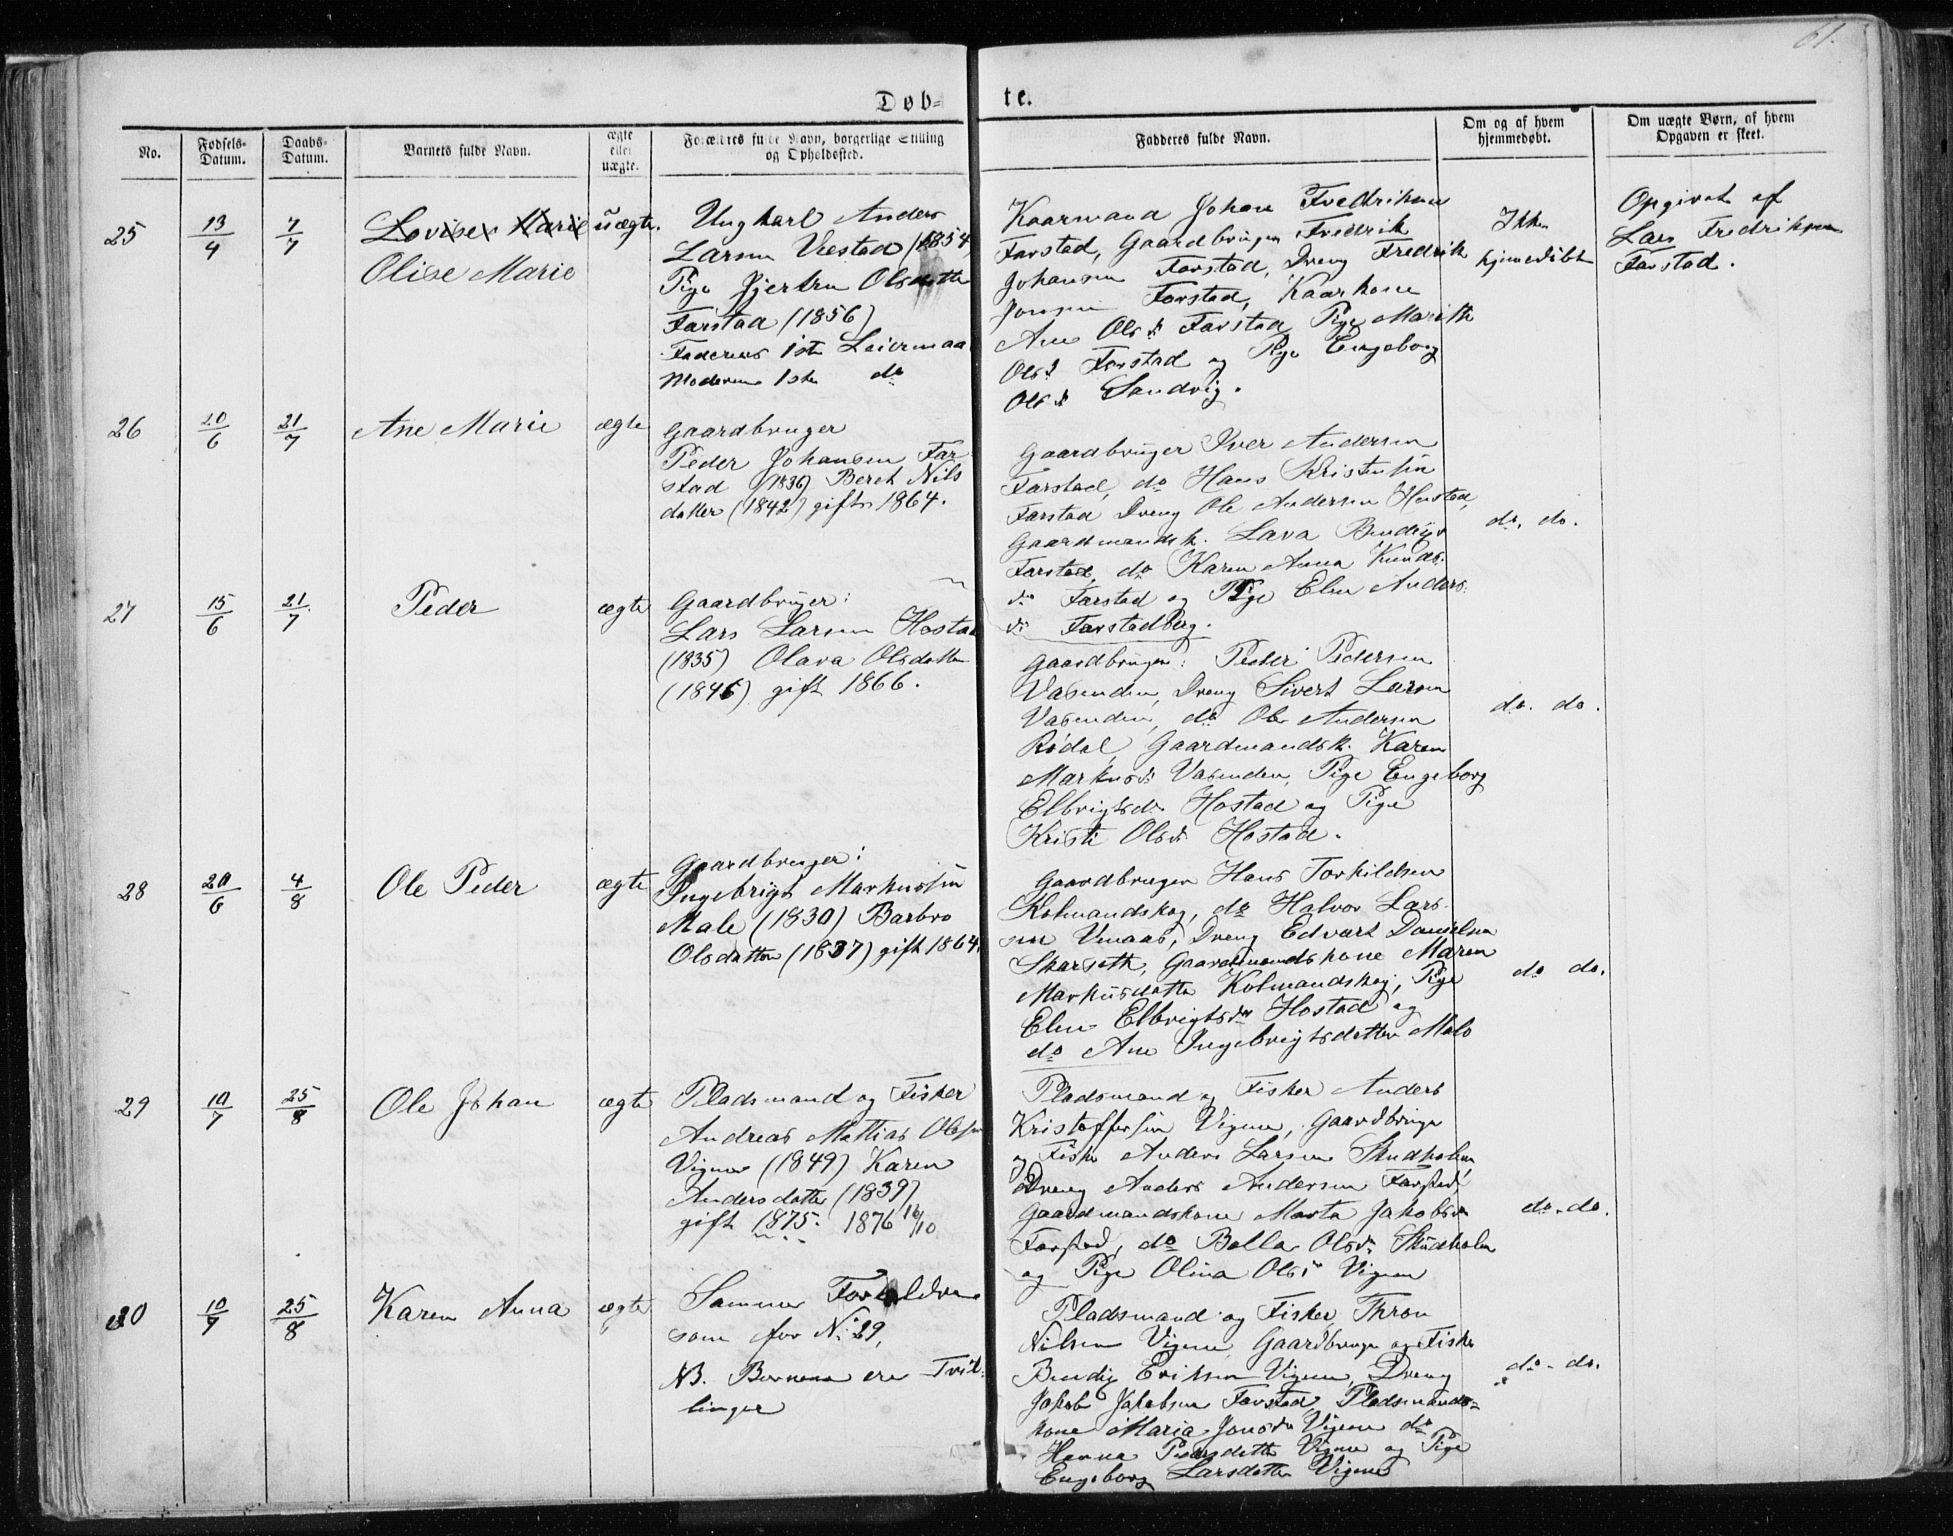 61.
Døb-
te.
No.
Fødsels-
Datum.
Daabs-
Datum.
Barnets fulde Navn.
ægte
eller
uægte.
Forældres fulde Navn, borgerlige Stilling
og Opholdssted.
Fadderes fulde Navn.
Om og af hvem
hjemmedøbt.
Om uægte Børn, af hvem
Opgaven er skeet.
25
13/4
7/7
Lovise Marie
Olise Marie
uægte.
Ungkarl Anders
Larsen Vestad (1854)
Pige Gjertru Olsdatter
Farstad (1856)
Faderens 1ste Leiermaa
Moderens 1ste do
Kaarmand Johan Fredriksen
Farstad, Gaardbruger Fredrik
Johansen Farstad, Dreng Fredrik
Jonsen Farstad, Kaarkone
Ane Olsd. Farstad Pige Marith
Olsd Farstad og Pige Engeborg
Olsd. Sandvig.
Ikke
hjemedøbt
Opgivet af
Lars Fredriksen
Farstad.
26
20/6
21/7
Ane Marie
ægte
Gaardbruger
Peder Johansen Far
stad (1836) Beret Nils
datter (1842) gift 1864.
Gaardbruger Iver Andersen
Farstad, do Hans Kristensen
Farstad Dreng Ole Andersen Hostad,
Gaardmandsk. Lava Bendigs
Farstad, do Karen Anna Knuds
dr Farstad og Pige Elen Anders
dr Farstadberg.
do. do.
27
15/6
21/7
Peder
ægte
Gaardbruger:
Lars Larsen Hostad
(1835) Olava Olsdatter
(1846) gift 1866.
Gaardbruger: Peder Pedersen
Vasenden, Dreng Sivert Larsen
Vasenden, do Ole Andersen
Rødal, Gaardmandsk. Karen
Markusdr Vasenden, Pige Engeborg
Elbrigtsdr Hostad og Pige
Kristi Olsdr Hostad.
do. do.
28
20/6
4/8
Ole Peder
ægte
Gaardbruger:
Ingebrigt Markussen
Male (1830) Barbro
Olsdatter (1837) gift 1864.
Gaardbruger Hans Torkildsen
Kolmandskog, do Halvor Lars-
sen Vinaas, Dreng Edvart Danielsen
Skarseth, Gaardmandskone Maren
Markusdatter Kolmandskog, Pige
Elen Elbrigtsdr Hostad og
do Ane Ingebrigtsdatter Male
do do.
29
10/7
25/8
Ole Johan
ægte
Pladsmand og Fisker
Andreas Mattias Olsen
Vigene (1849) Karen
Andersdatter (1839)
gift 1875. 1876 16/10
Pladsmand og Fisker Anders
Kristoffersen Vigene, Gaardbruger
og Fisker Anders Larsen Skudholm
Dreng Anders Andersen Farstad
Gaardmandskone Marta Jakobsdr
Farstad, do Bolla Olsdr Skudholm
og Pige Olina Olsdr Vigene
do. do.
30
10/7
25/8
Karen Anna
ægte
Samme Forældre
som for No 29,
NB. Børnene ere Tvil-
linger
Pladsmand og Fisker Thron
Nilsen Vigene, Gaardbruger og Fisker
Bendig Eriksen Vigene, Dreng
Jakob Jakobsen Farstad, Pladsmands-
kone Maria Jonsdr Vigene do
Hanna Pedersdatter Vigene og Pige
Engeborg Larsdatter Vigene
do. do.